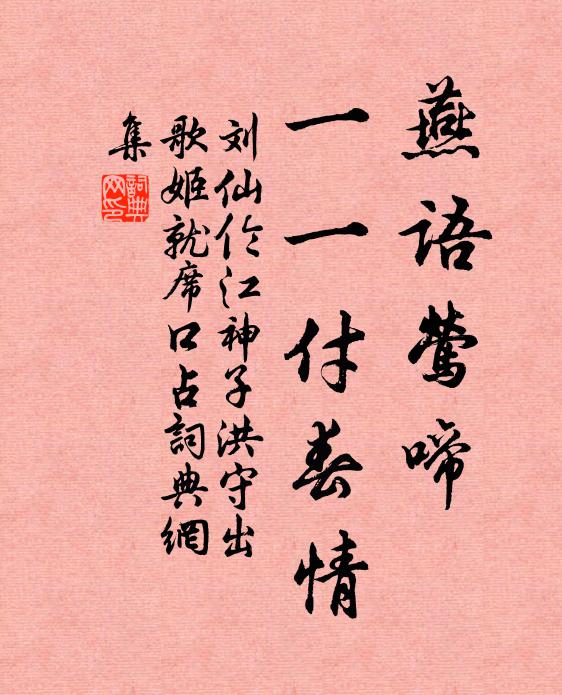 燕语莺啼
一一付春情
刘仙伦江神子洪守出
歌姬就席口占詞典網
集
詞典
网印